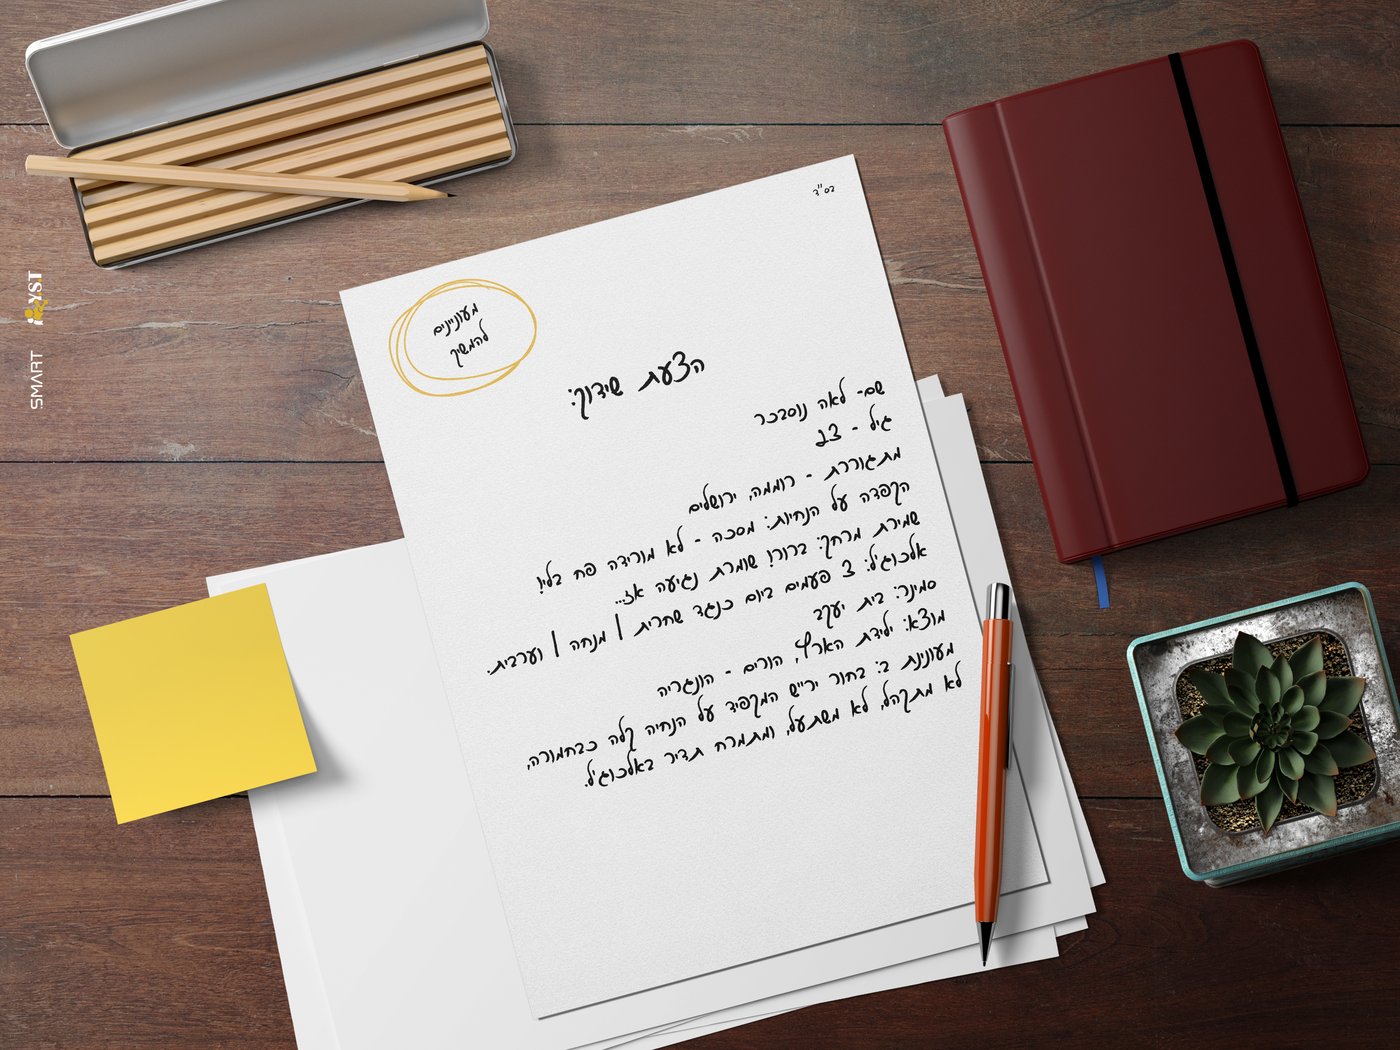 בס"ד
מעוניינים
להמשיך
הצעת שידוך:
שם- לאה נוסבכר
גיל - 23
מתגוררת - רוממה, ירושלים
הקפדה על הנחיות: מסכה - לא מורידה פח בליו!
שמירת מרחק: ברור! שומרת נגיעה אז...
אלכוג'ל: 3 פעמים ביום כנגד שחרית | מנחה | וערבית.
סמינר: בית יעקב
מוצא: ילידת הארץ, הורים - הונגריה
מעונינת ב: בחור ירייש המקפיד על הנחיה קלה כבחמורה,
לא מתקהל, לא משתעל, ומתמרח תדיר באלכוג'ל.
SMART
YST